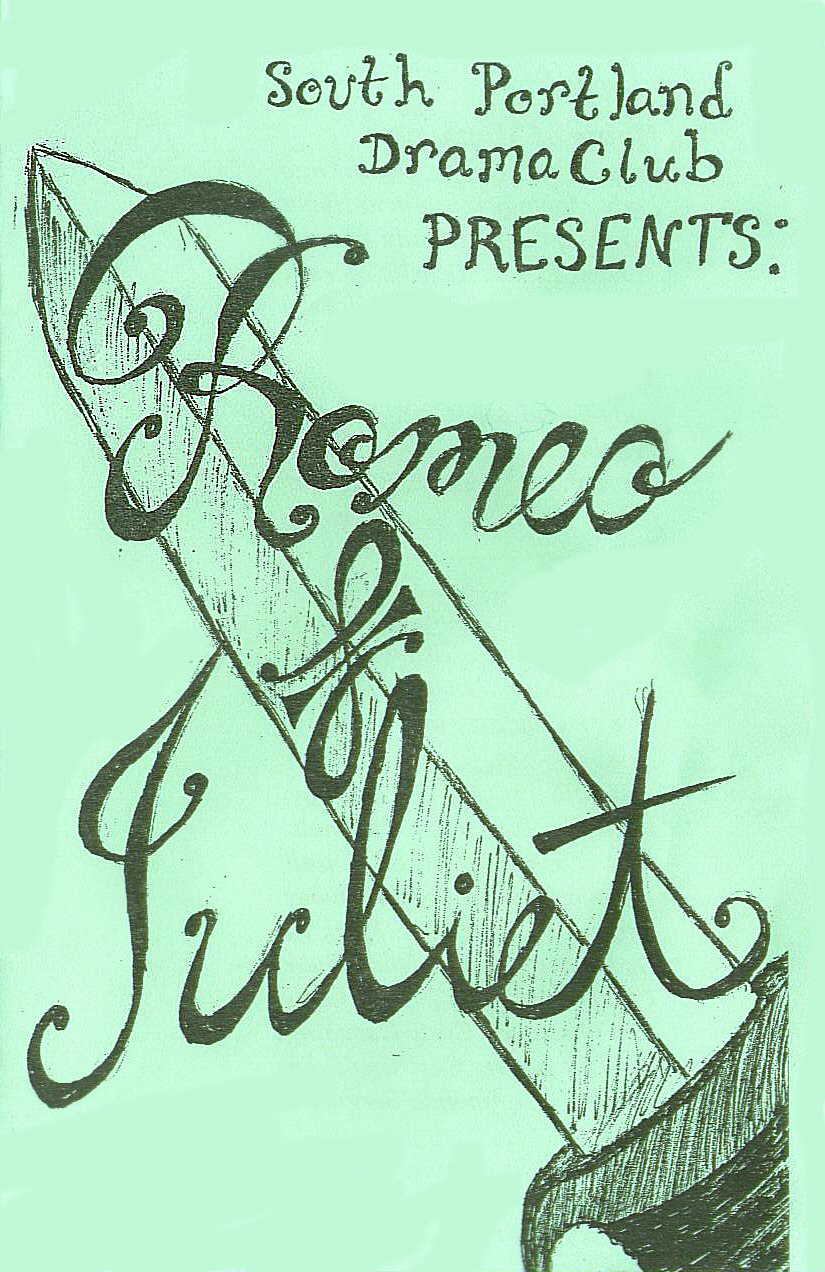 South Portland
Drama Club
PRESENTS:
Romeo
&
Juliet